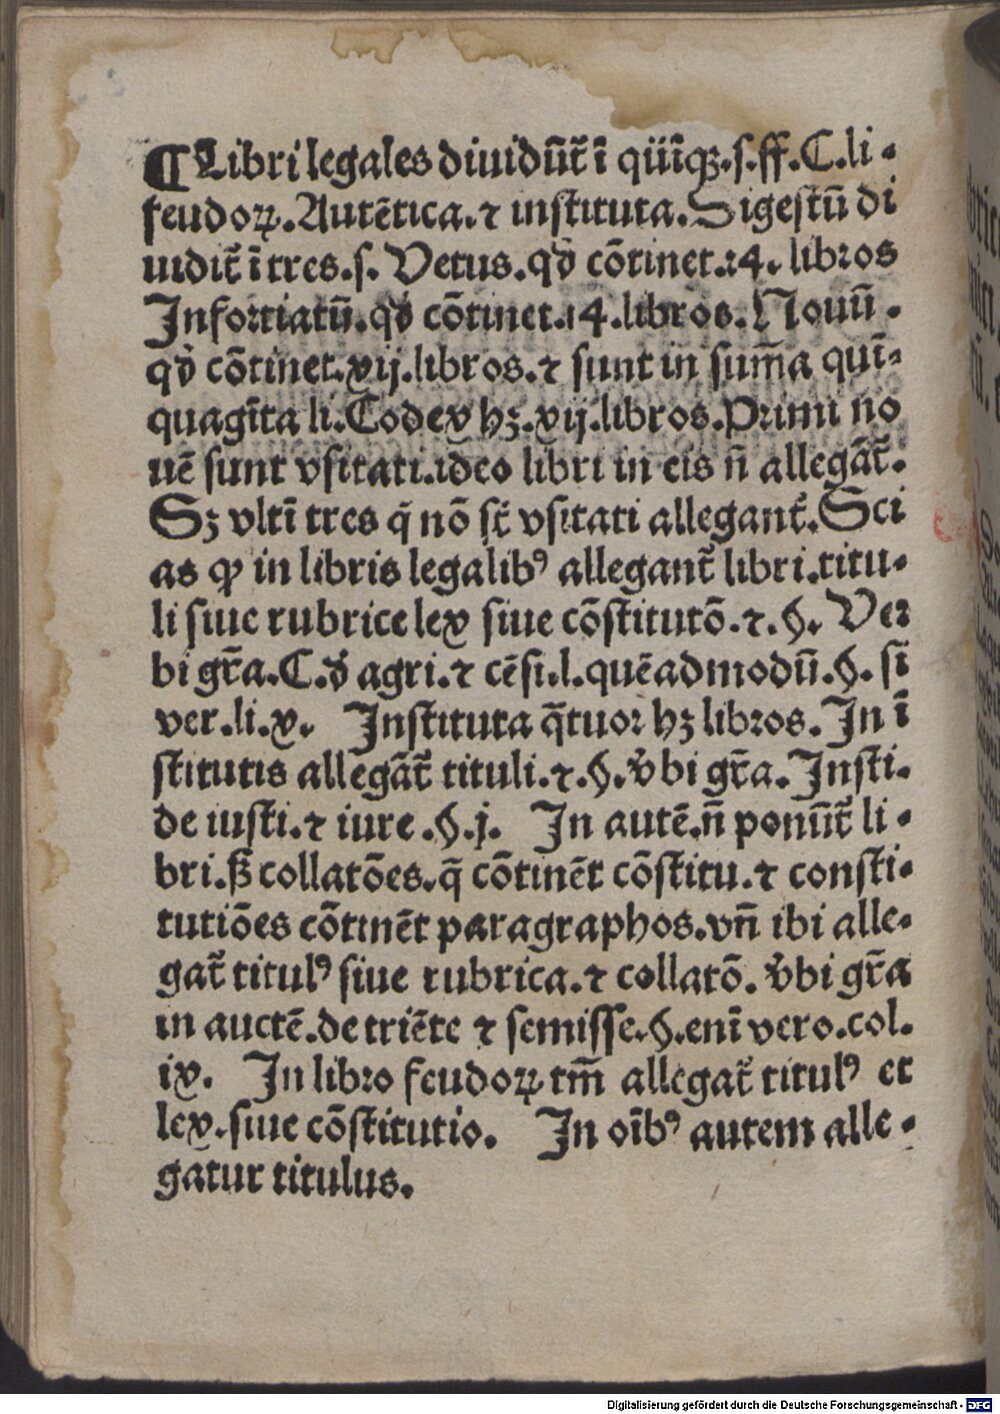 ¶ Libri legales diuidũt᷑ ĩ qüĩqꝫ.s.ff.C.li-
feudoꝝ.Autẽtica.⁊ instituta.Digestũ di
uidit᷑ ĩ tres.s. Vetus.qđ cõtinet.24. libros
Infortiatũ.qđ cõtinet.14.libros.Nouũ.
qđ cõtinet.xij.libros.⁊ sunt in sum̃a quĩ-
quagĩta li.Codex hꝫ.xij.libros.Primi no
uẽ sunt vsitati.ideo libri in eis ñ allegãt᷑.
Sꝫ vltĩ tres q̃ nõ st̃ vsitati allegant᷑.Sci
as ꝙ in libris legalibꝰ allegant᷑ libri.titu-
li siue rubrice lex siue cõstitutõ.⁊.§. Ver
bi gr̃a.C.đ agri.⁊ cẽsi.l.quẽadmodũ.§. sĩ
ver.li.x. Instituta q̃tuor hꝫ libros. In ĩ
stitutis allegãt᷑ tituli.⁊.§.v̉bi gr̃a. Insti.
de iusti.⁊ iure.§.j. In autẽ.ñ ponũt᷑ li-
bri.ß̃ collatões.q̃ cõtinẽt cõstitu.⁊ consti-
tutiões cõtinẽt paragraphos.vñ ibi alle-
gat᷑ titulꝰ siue rubrica.⁊ collatõ. v̉bi gr̃a
in auctẽ.de triẽte ⁊ semisse.§.enĩ vero.col.
ix. In libro feudoꝝ tm̃ allegat᷑ titulꝰ et
lex.siue cõstitutio. In oĩbꝰ autem alle-
gatur titulus.
Digitalisierung gefördert durch die Deutsche Forschungsgemeinschaft - DFG